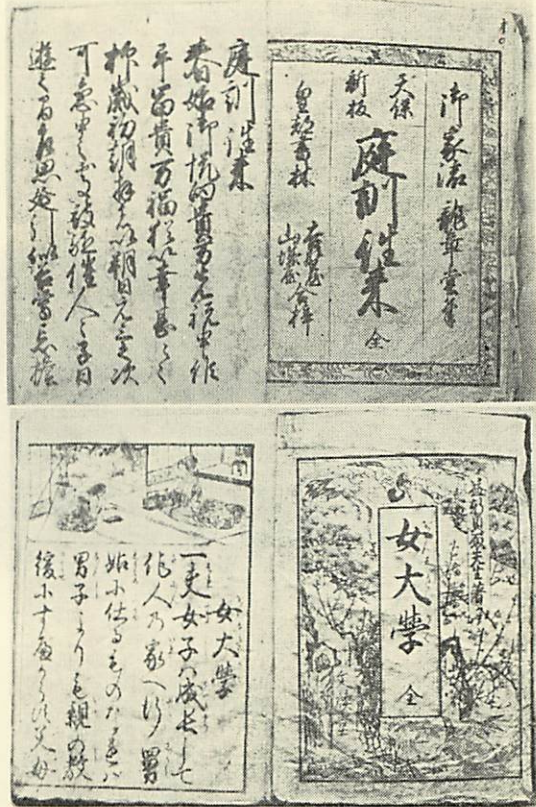 御家流 龍章堂書
天保
新板
庭訓往来 全
皇都書林
山城屋
合梓
庭訓往来
春始御悦向貴方先祝申候
畢富貴万福猶以幸甚々々
抑歳初朝拝者以朔日元三之次
可急申之処被駆催人々子日
遊之間乍思延引似谷鶯忘檐
女大学 全
益軒貝原先生著述
女大学
一夫女子ハ成長して
他人の家へ行舅
姑に仕るものなれバ
男子よりも親の教
緩にすべからず父母